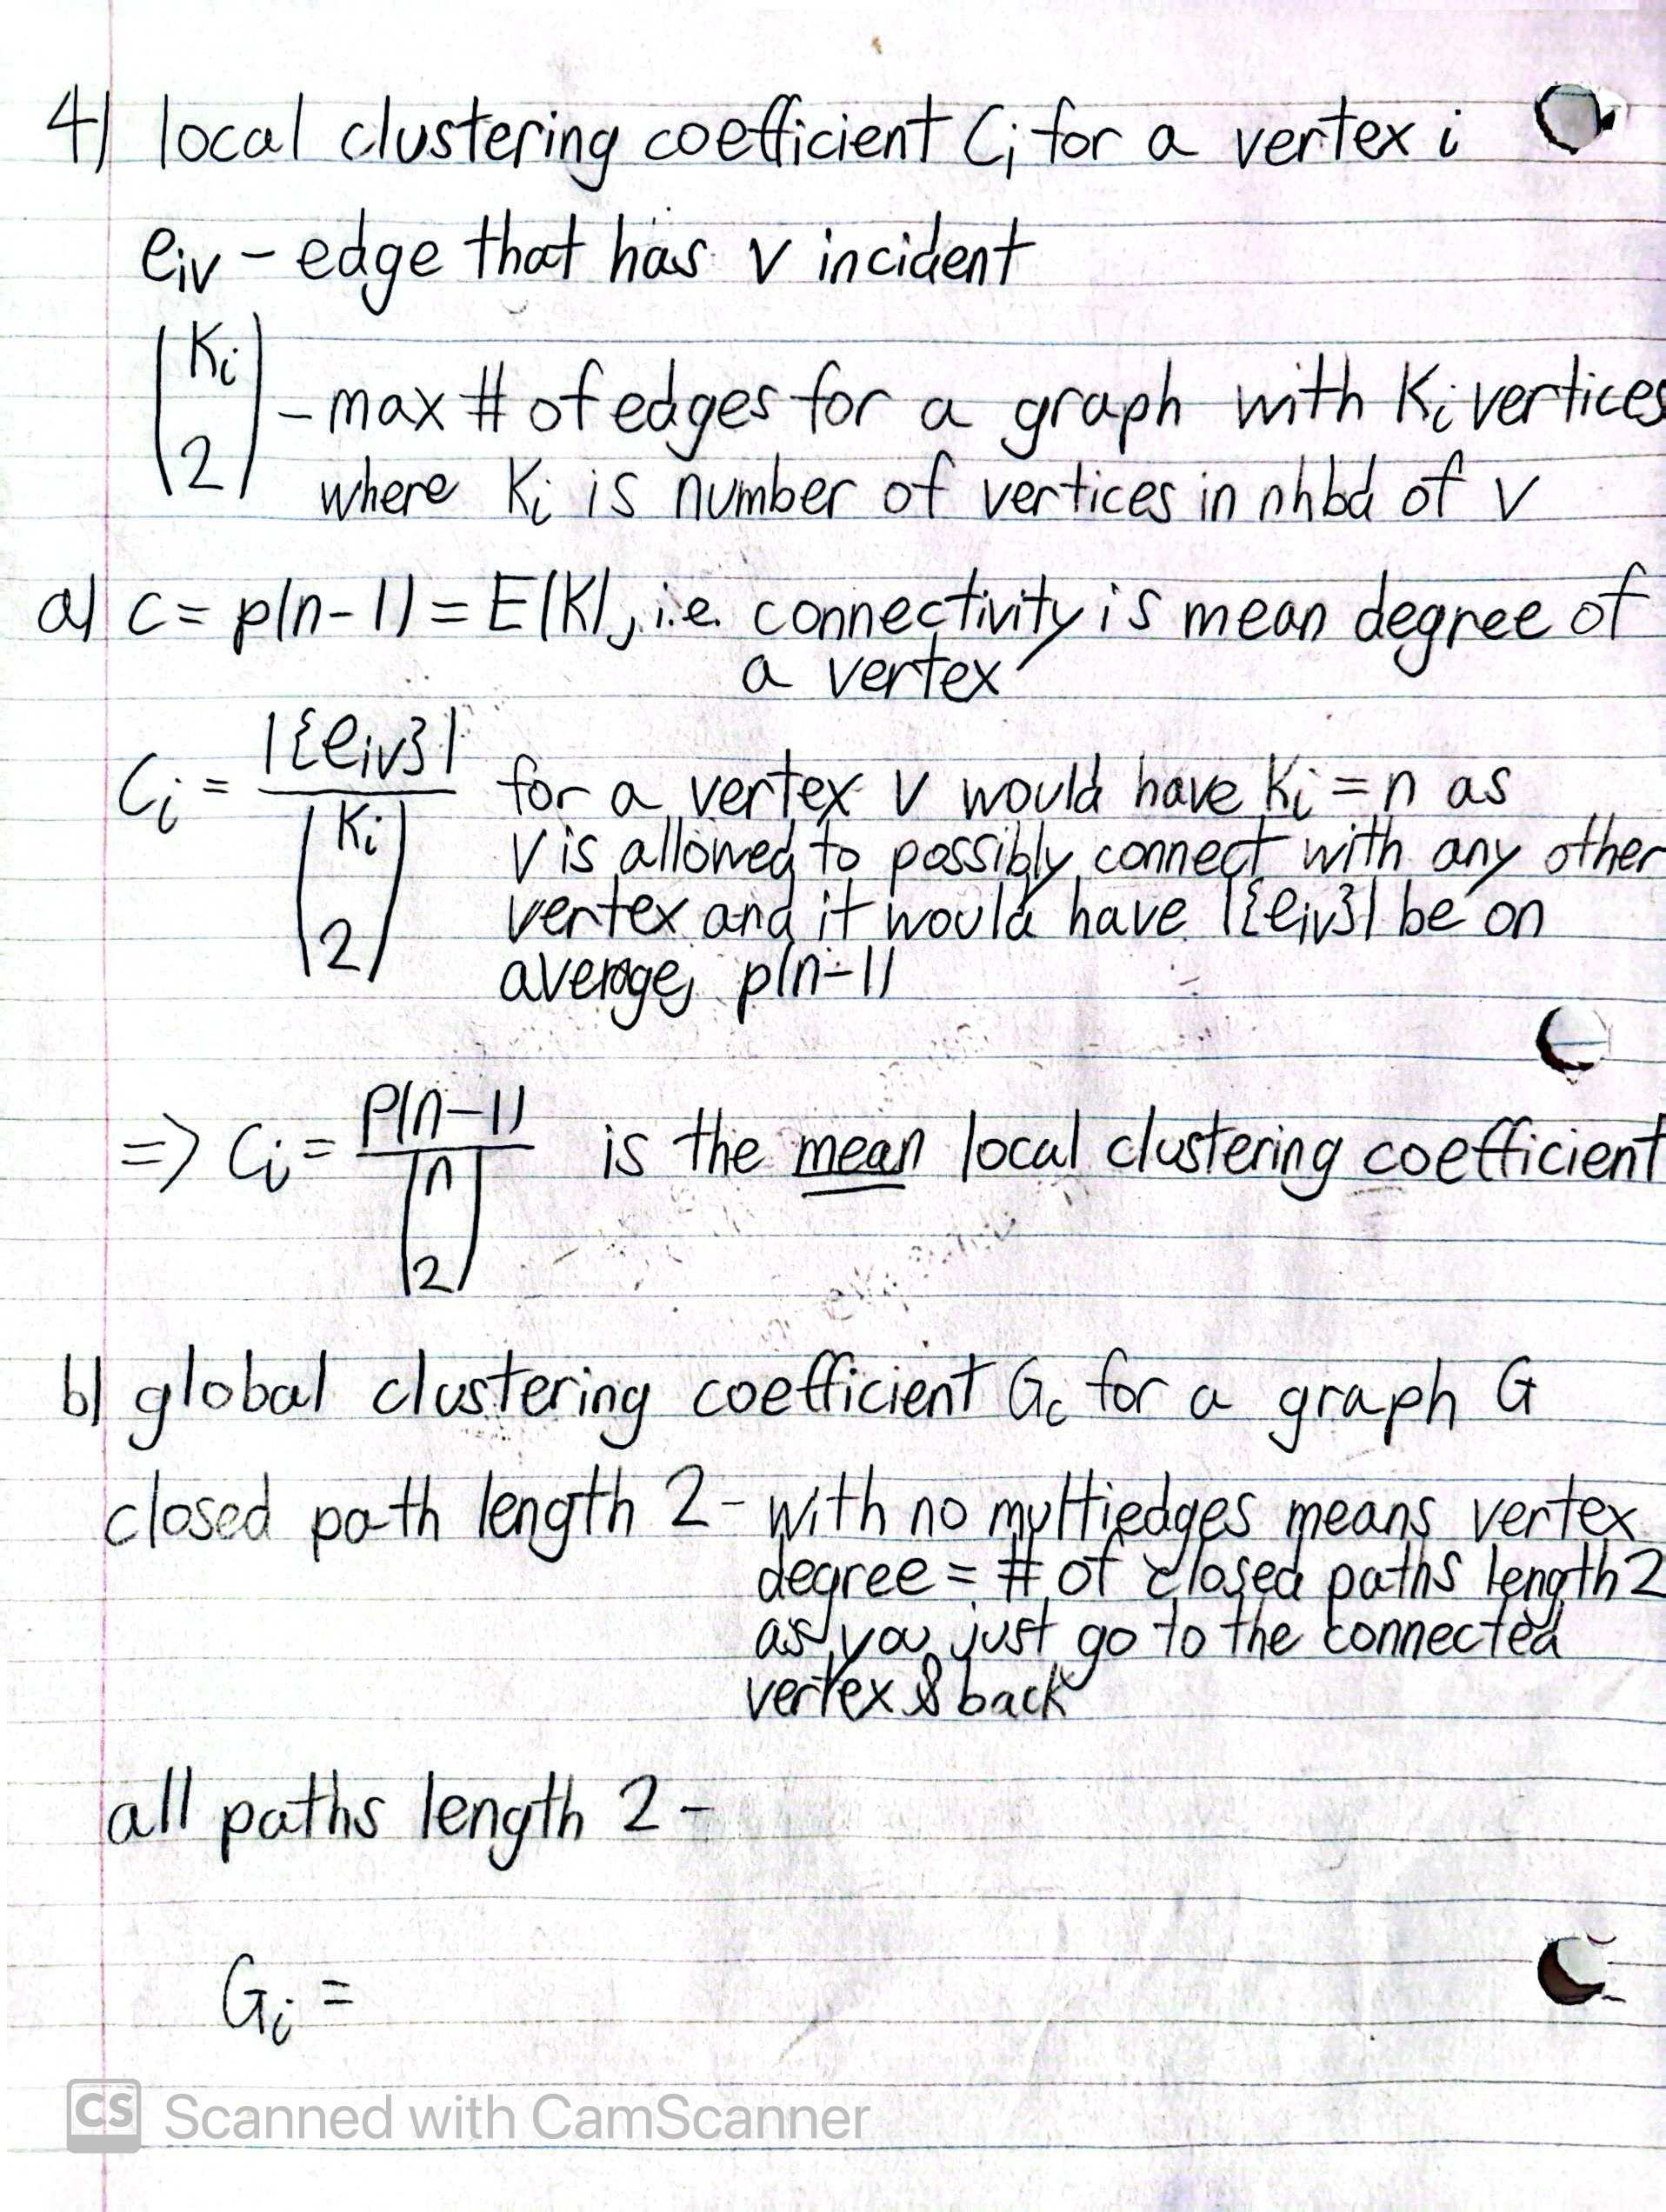 4) local clustering coefficient Ci for a vertex i
eiv - edge that has v incident
(Ki
2) - max # of edges for a graph with Ki vertices
where Ki is number of vertices in nhbd of v
a) c = p(n-1) = E(K), i.e. connectivity is mean degree of
a vertex
Ci = |{eiv}| / (Ki 2) for a vertex v would have Ki = n as
v is allowed to possibly connect with any other
vertex and it would have |{eiv}| be on
average, p(n-1)
=> Ci = p(n-1) / (n 2) is the mean local clustering coefficient
b) global clustering coefficient Gc for a graph G
closed path length 2 - with no multiedges means vertex
degree = # of closed paths length 2
as you just go to the connected
vertex & back
all paths length 2 -
Gi =
CS Scanned with CamScanner